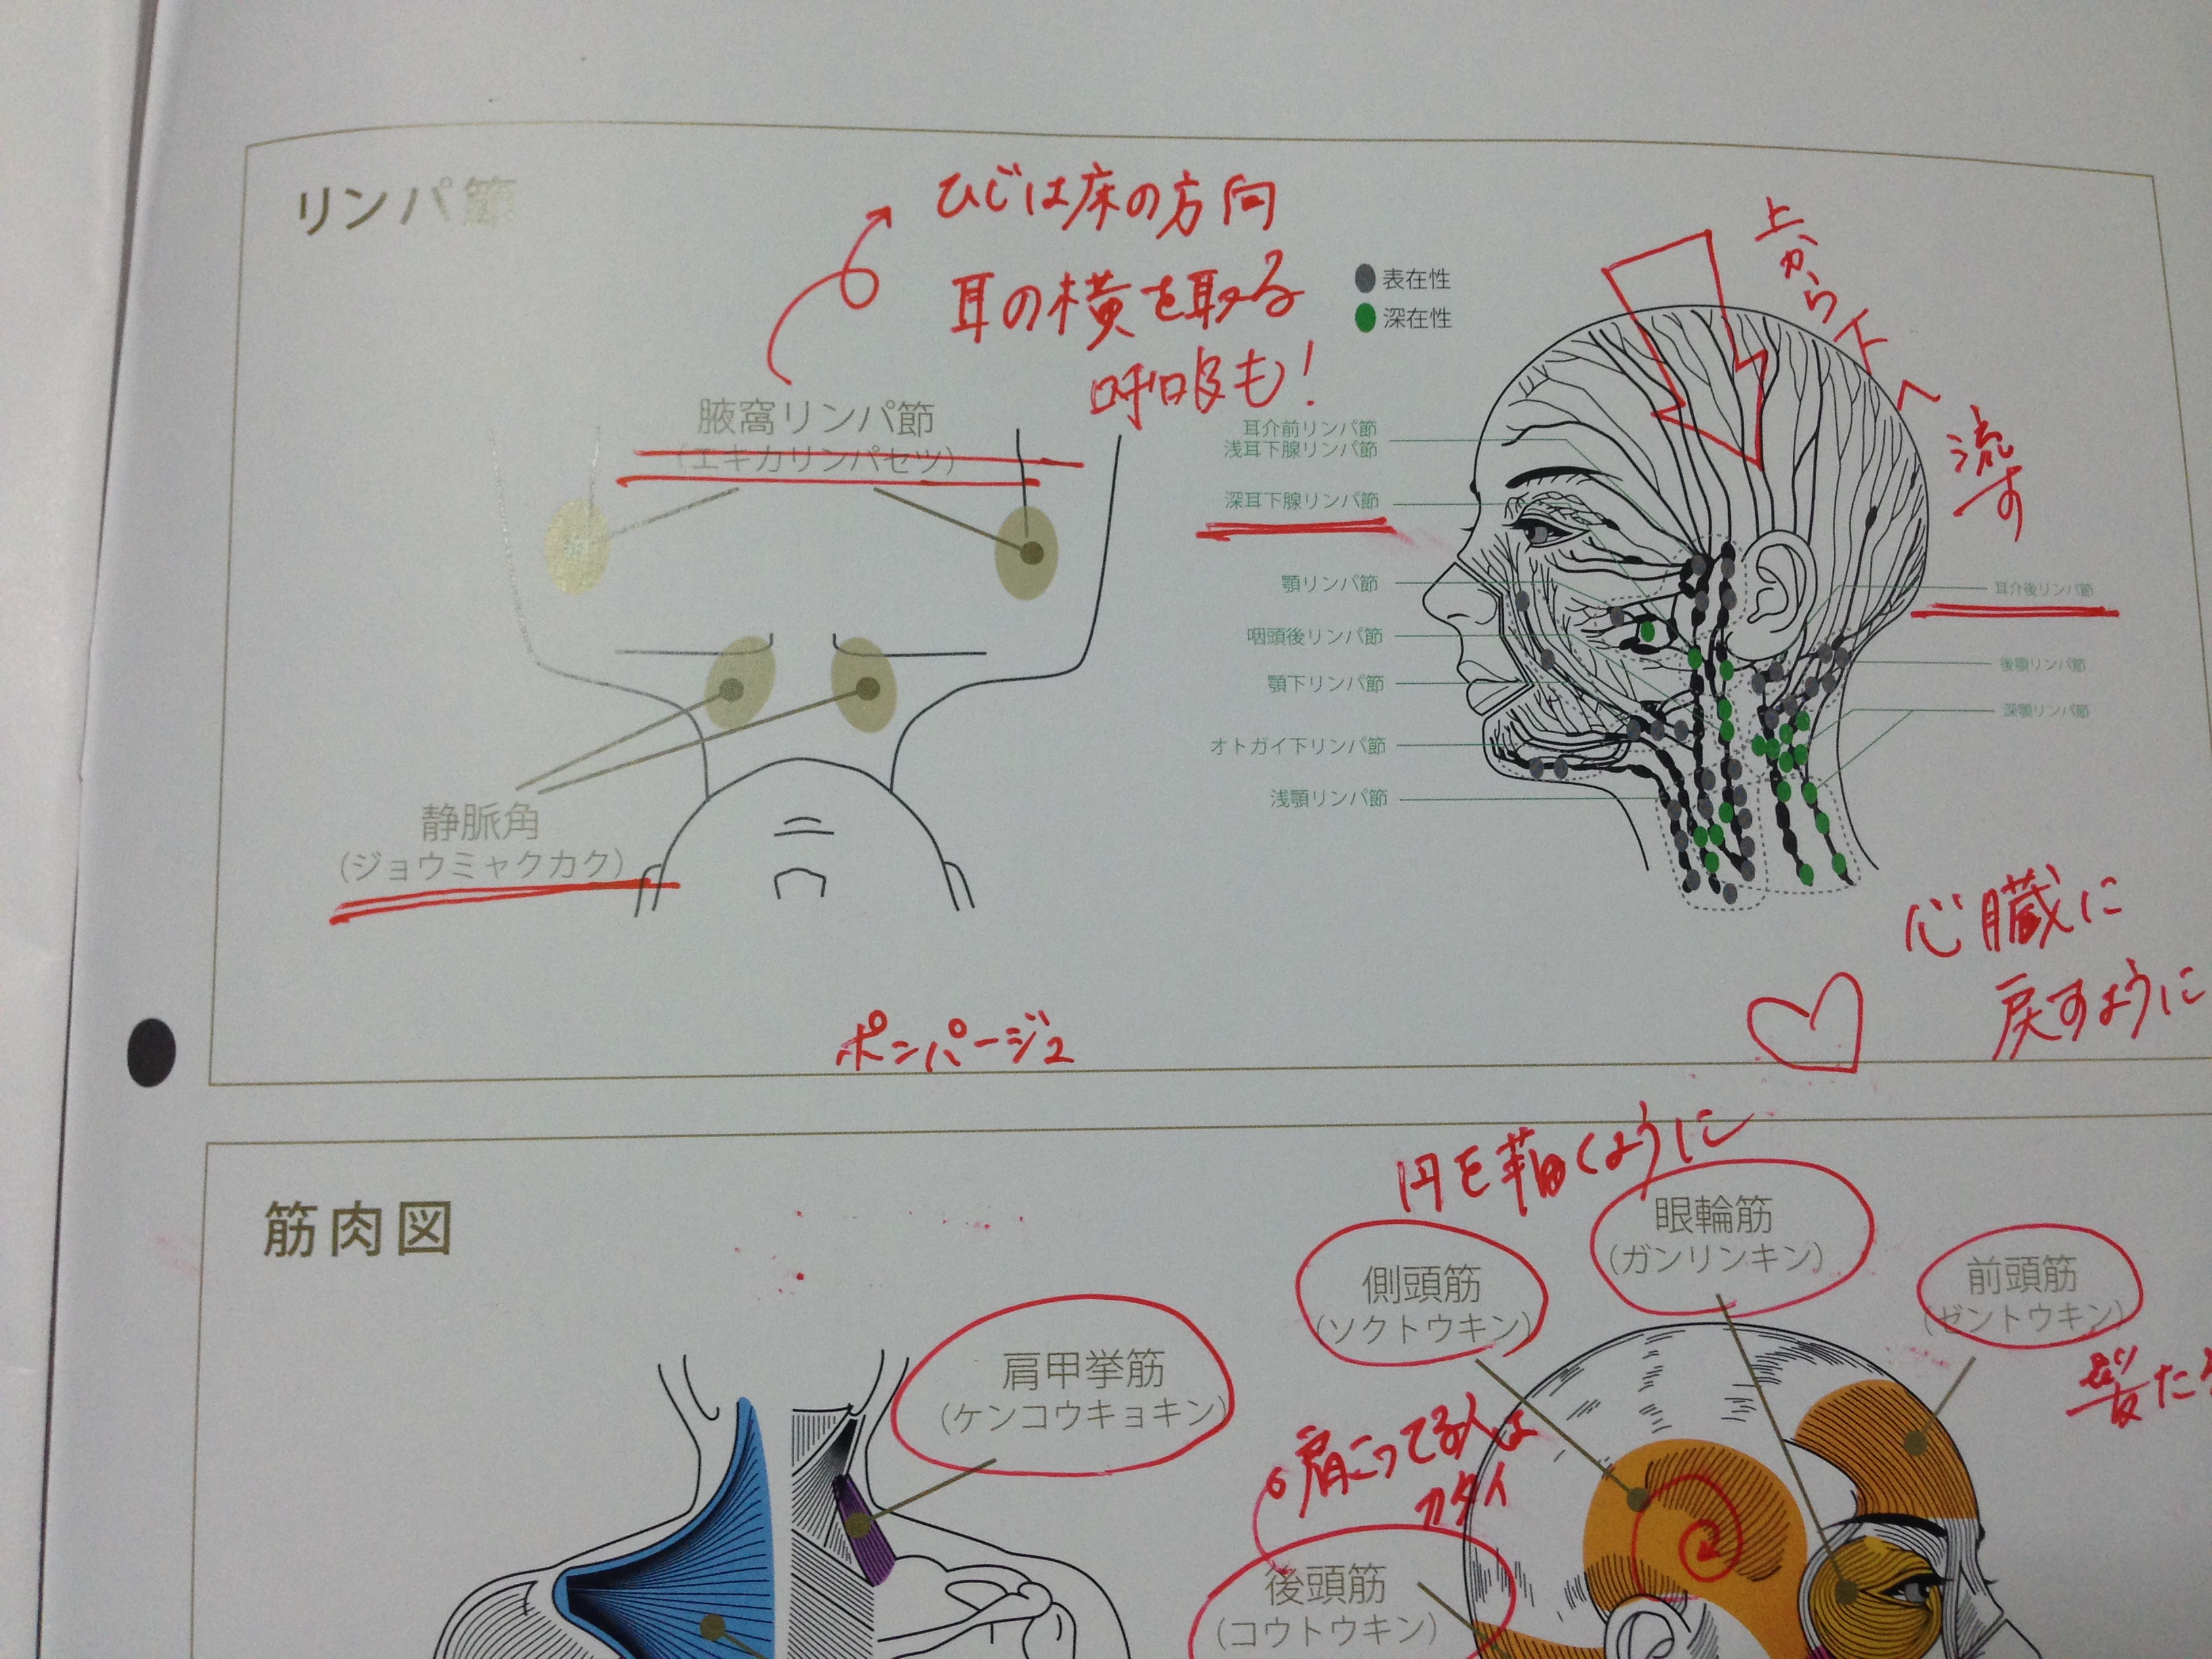 リンパ節
ひじは床の方向
耳の横を取る
呼吸も！
腋窩リンパ節
（エキカリンパセツ）
静脈角
（ジョウミャクカク）
ポンパージュ
表在性
深在性
上から下へ
流す
耳介前リンパ節
浅耳下腺リンパ節
深耳下腺リンパ節
顎リンパ節
咽頭後リンパ節
顎下リンパ節
オトガイ下リンパ節
浅顎リンパ節
耳介後リンパ節
後顎リンパ節
深顎リンパ節
心臓に
戻すように
筋肉図
肩甲挙筋
（ケンコウキョキン）
円を描くように
側頭筋
（ソクトウキン）
眼輪筋
（ガンリンキン）
前頭筋
（ゼントウキン）
肩こってる人は
カタイ
後頭筋
（コウトウキン）